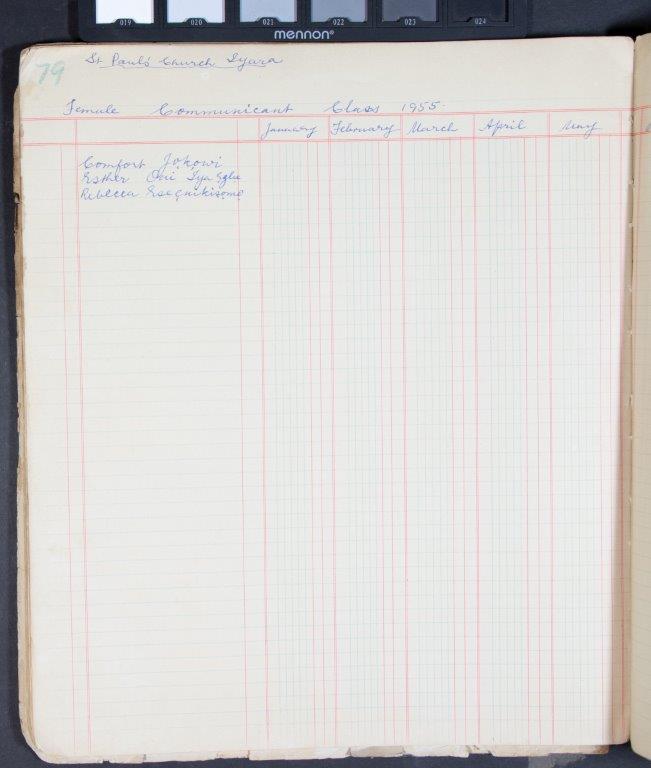 019 020 021 022 023 024
mennon®
79
St Paul's Church Iyara
Female Communicant Class 1955
January February March April May
Comfort Jokowi
Esther Oni Iya Egbe
Rebecca